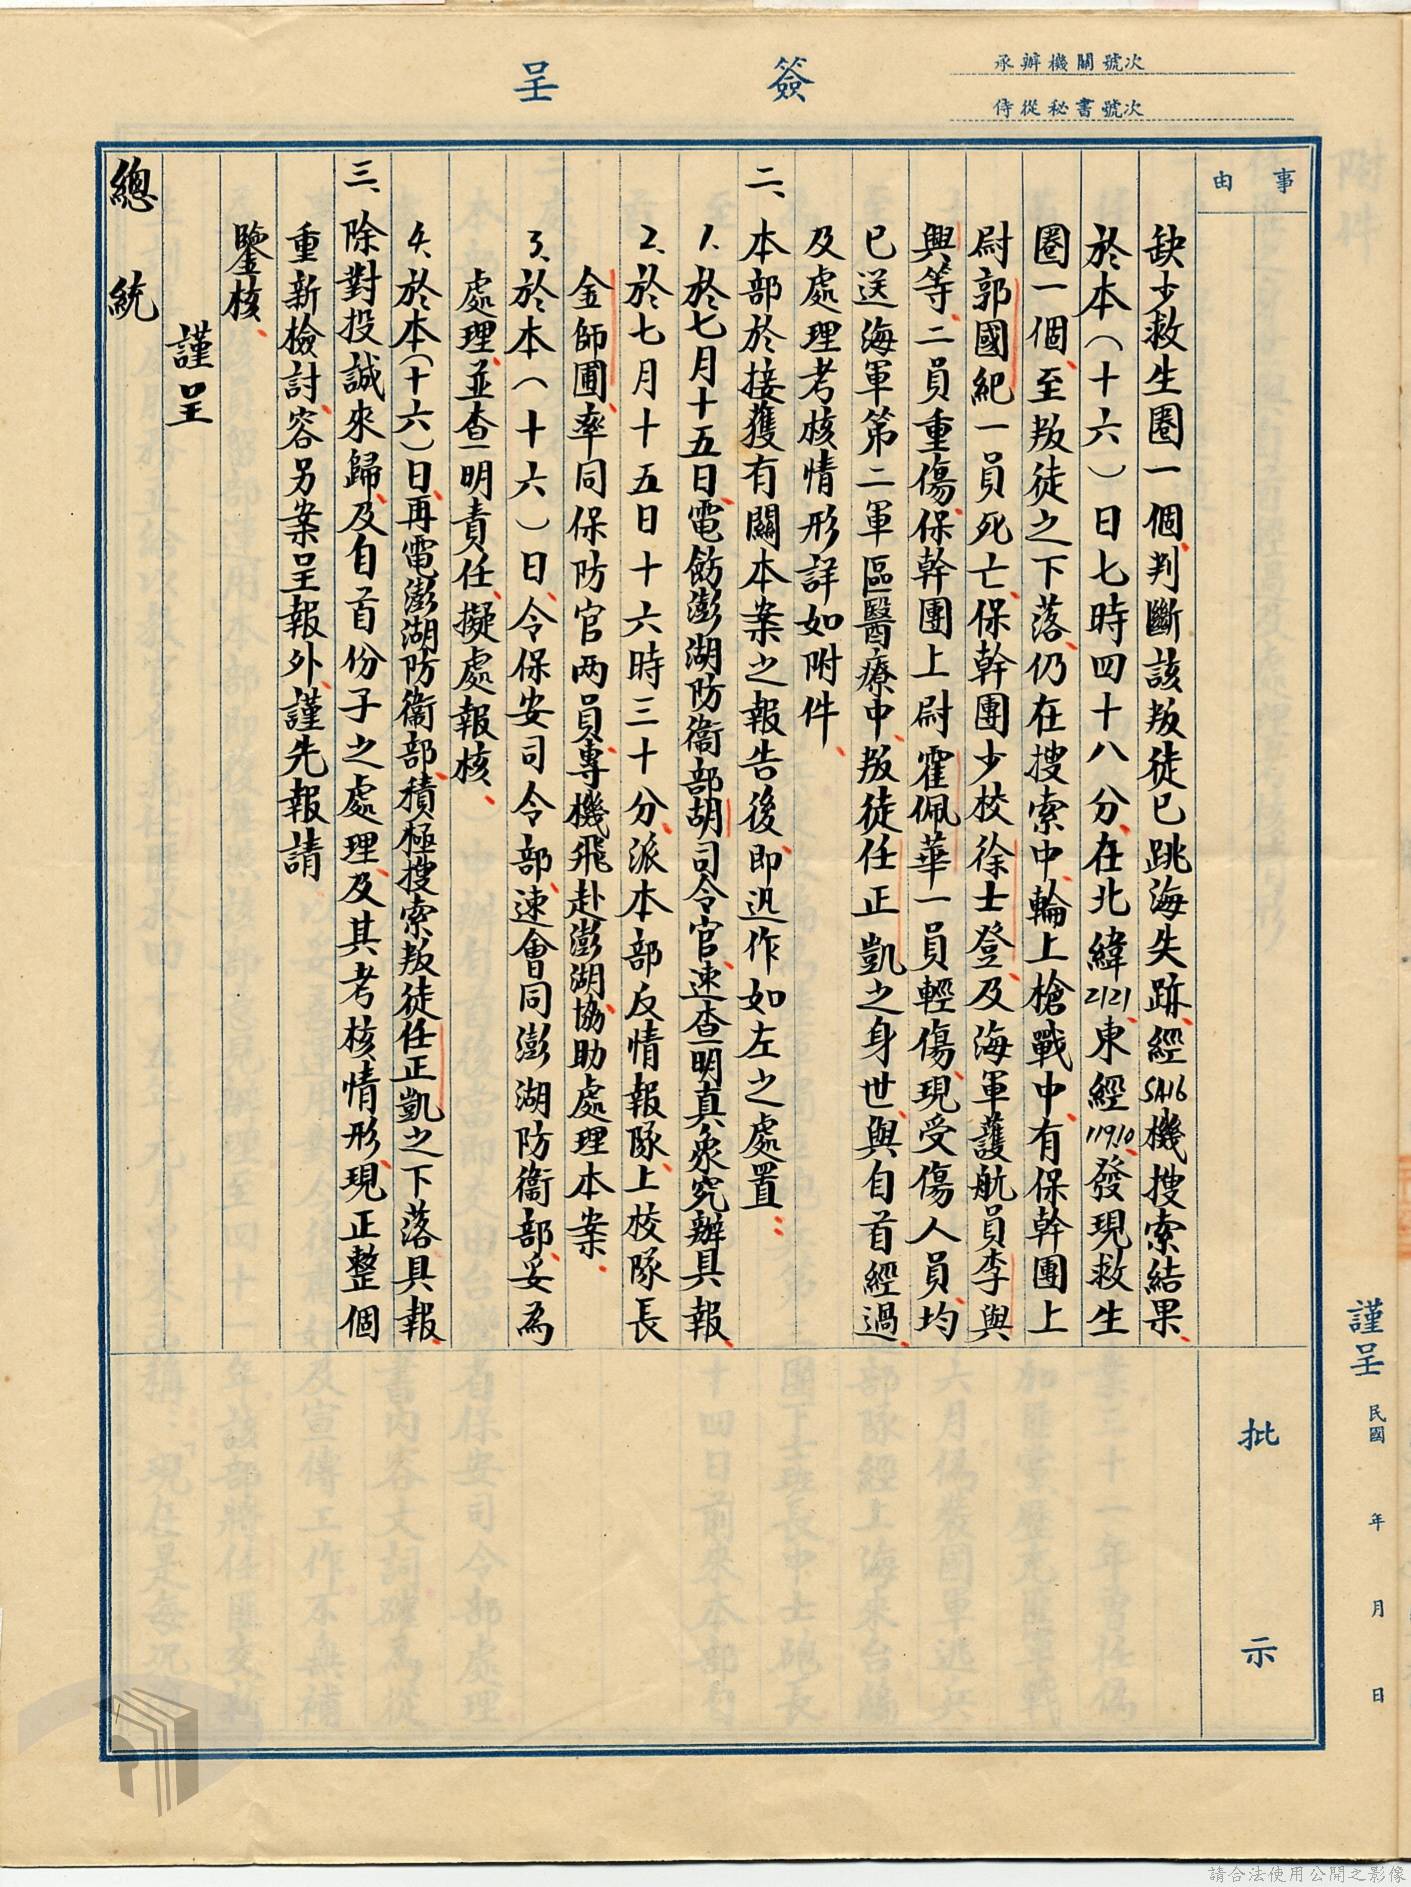 簽呈
承辦機關號次
侍從秘書號次
事由
缺少救生圈一個、判斷該叛徒已跳海失跡、經SA16機搜索結果、
於本(十六)日七時四十八分、在北緯2121、東經119.10、發現救生
圈一個、至叛徒之下落、仍在搜索中、輪上槍戰中、有保幹團上
尉郭國紀一員死亡、保幹團少校徐士登、及海軍護航員李與
興等、二員重傷、保幹團上尉霍佩華一員輕傷、現受傷人員、均
已送海軍第二軍區醫療中、叛徒任正凱之身世、與自首經過、
及處理考核情形詳如附件、
二、本部於接獲有關本案之報告後、即迅作如左之處置：
1.於七月十五日、電飭澎湖防衞部胡司令官、速查明真象究辦具報、
2.於七月十五日十六時三十分、派本部反情報隊、上校隊長
金師圃、率同保防官两員、專機飛赴澎湖、協助處理本案、
3.於本(十六)日、令保安司令部、速會同澎湖防衞部、妥為
處理、並查明責任、擬處報核、
4.於本(十六)日、再電澎湖防衞部、積極搜索叛徒任正凱之下落具報、
三、除對投誠來歸、及自首份子之處理、及其考核情形、現正整個
重新檢討、容另案呈報外、謹先報請
鑒核、
謹呈
總統
批示
謹呈
民國 年 月 日
請合法使用公開之影像